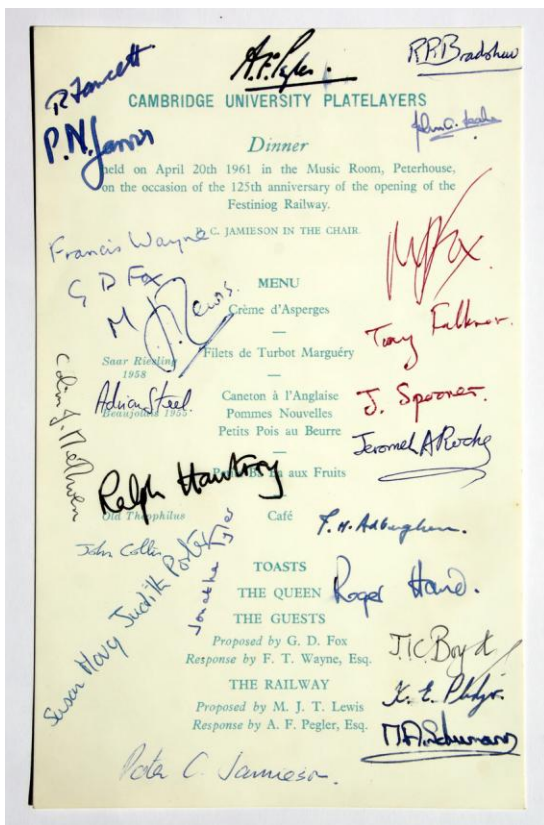 R. Fawcett
A. F. Pegler.
R.P. Bradshaw
CAMBRIDGE UNIVERSITY PLATELAYERS
P. N. Jarvis
Dinner
held on April 20th 1961 in the Music Room, Peterhouse,
on the occasion of the 125th anniversary of the opening of the
Festiniog Railway.
C. JAMIESON IN THE CHAIR.
Francis Wayne
G D Fox
Fox.
M J T Lewis.
MENU
Crème d'Asperges
Tony Falkner.
Saar Riesling
1958
Filets de Turbot Marguéry
Adrian Steel
Beaujolais 1955
Caneton à l'Anglaise
Pommes Nouvelles
Petits Pois au Beurre
J. Spooner.
Colin J.
aux Fruits
Ralph Hawtrey
Old Theophilus
Café
John Collin
Jonathan Tyler
TOASTS
THE QUEEN
Roger Hand.
THE GUESTS
Judith Porter
Susan Hovy
Proposed by G. D. Fox
Response by F. T. Wayne, Esq.
J.I.C. Boyd
THE RAILWAY
Proposed by M. J. T. Lewis
Response by A. F. Pegler, Esq.
K. E.
M.A. Schumann
Peter C. Jamieson.